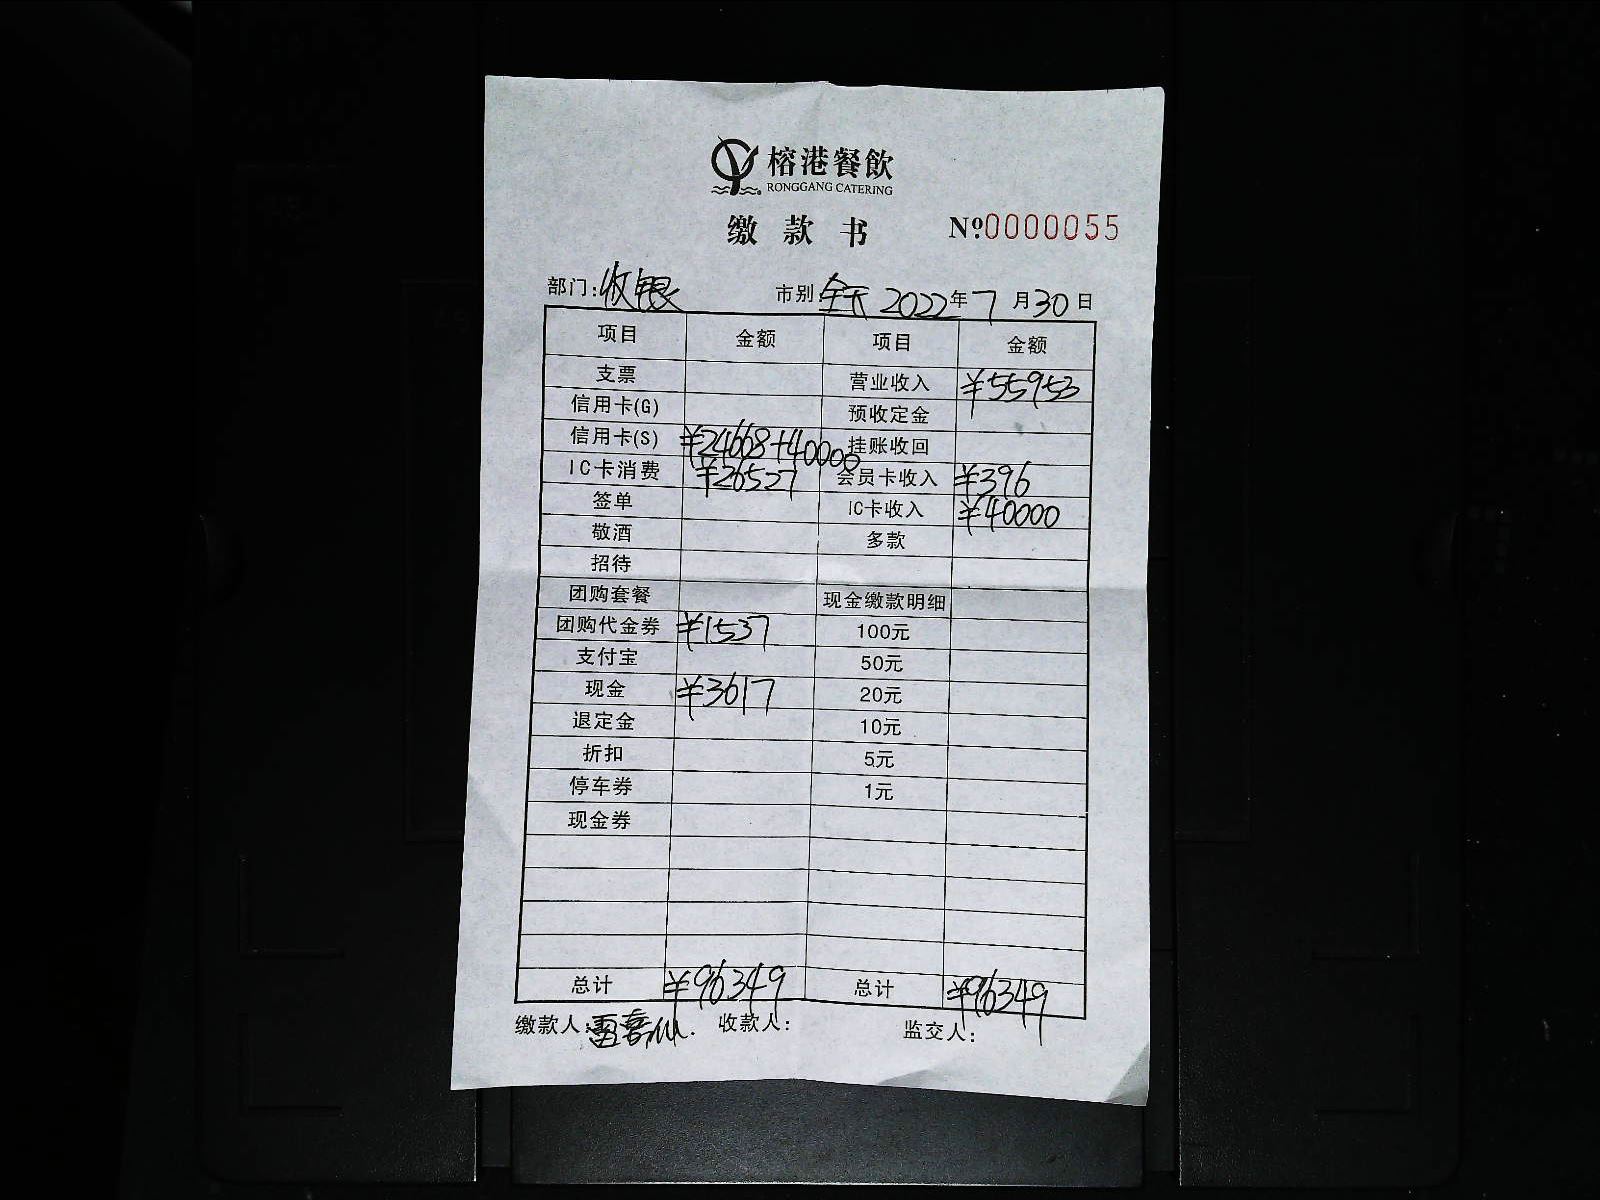 榕港餐飲
RONGGANG CATERING
缴款书 №0000055
部门:收银 市别 全天 2022年7月30日
项目 金额 项目 金额
支票 营业收入 ¥55953
信用卡(G) 预收定金
信用卡(S) ¥24668+40000 挂账收回
IC卡消费 ¥26527 会员卡收入 ¥396
签单 IC卡收入 ¥40000
敬酒 多款
招待
团购套餐 现金缴款明细
团购代金券 ¥1537 100元
支付宝 50元
现金 ¥3617 20元
退定金 10元
折扣 5元
停车券 1元
现金券
总计 ¥96349 总计 ¥96349
缴款人: 收款人: 监交人: